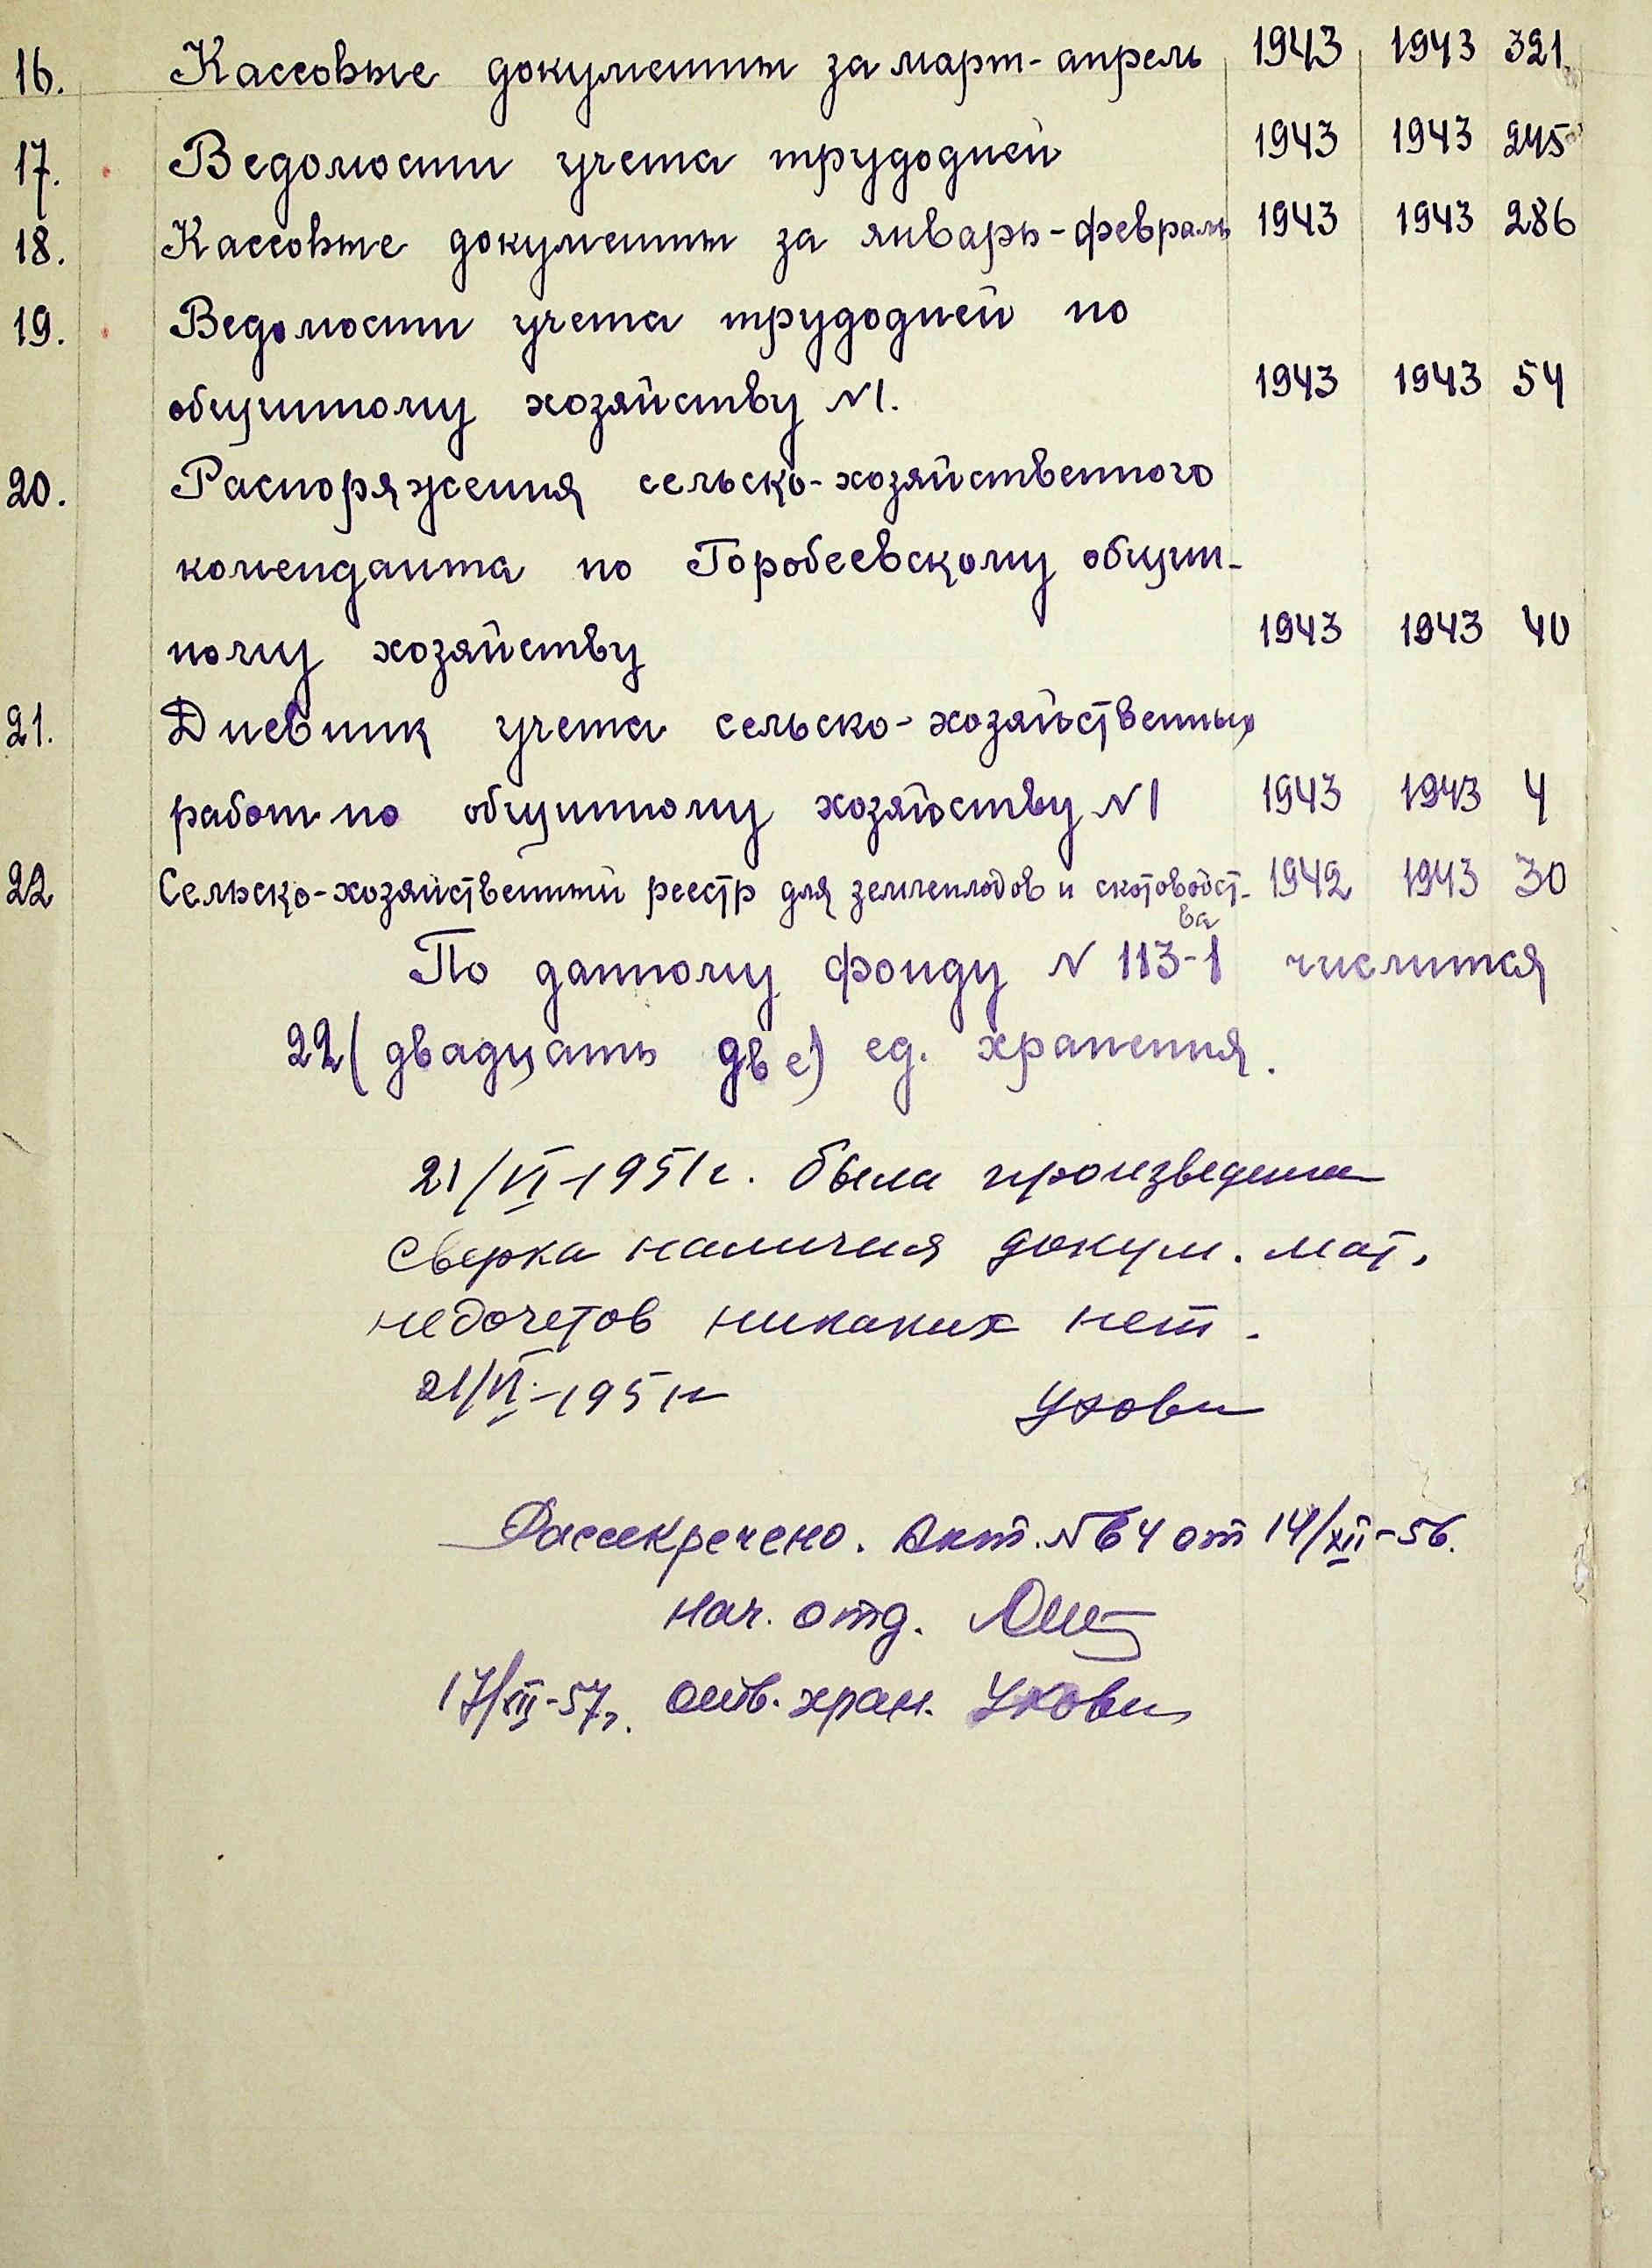 16. Кассовые документы за март-апрель 1943 1943 321.
17. Ведомости учета трудодней 1943 1943 245
18. Кассовые документы за январь-февраль 1943 1943 286
19. Ведомости учета трудодней по
общинному хозяйству №1. 1943 1943 54
20. Распоряжения сельско-хозяйственного
коменданта по Горобеевскому общин-
ному хозяйству 1943 1943 40
21. Дневник учета сельско-хозяйственных
работ по общинному хозяйству №1 1943 1943 4
22 Сельско-хозяйственный реестр для землеплодов и скотоводст- 1942 1943 30
ва
По данному фонду № 113-1 числится
22 (двадцать две) ед. хранения.
21/VI-1951г. была произведена
сверка наличия докум. мат.
недочетов никаких нет.
21/VI-1951г
Рассекречено. Акт. №64 от 14/XII-56.
нач. отд.
17/XII-57г. отв. хран.